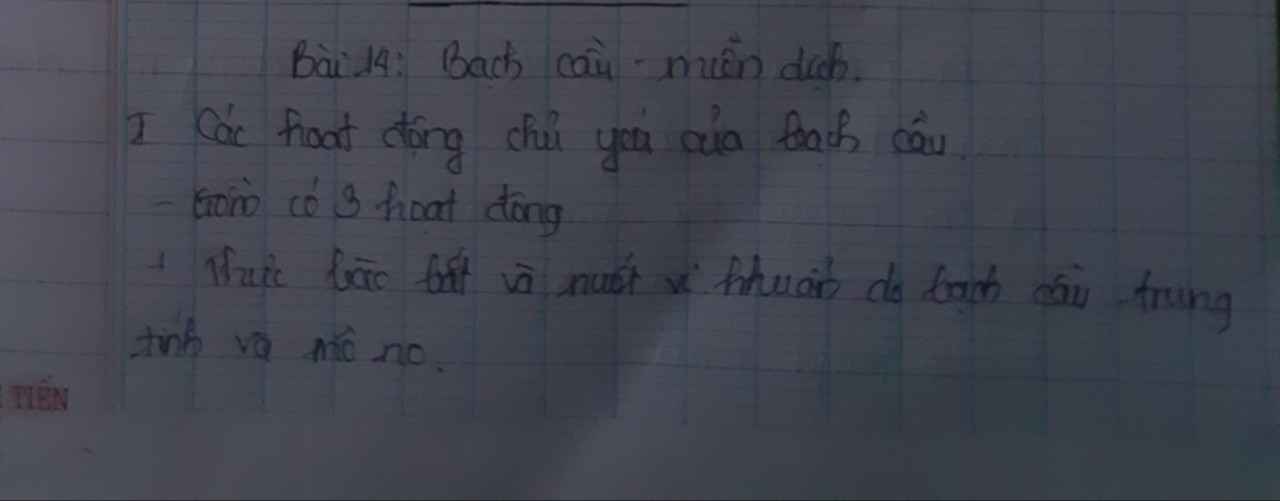 Bài 14: Bạch cầu - miễn dịch.
I Các hoạt động chủ yếu của bạch cầu
- Gồm có 3 hoạt động
+ Thực bào bắt và nuốt vi khuẩn do bạch cầu trung
tính và mô no.
TIẾN